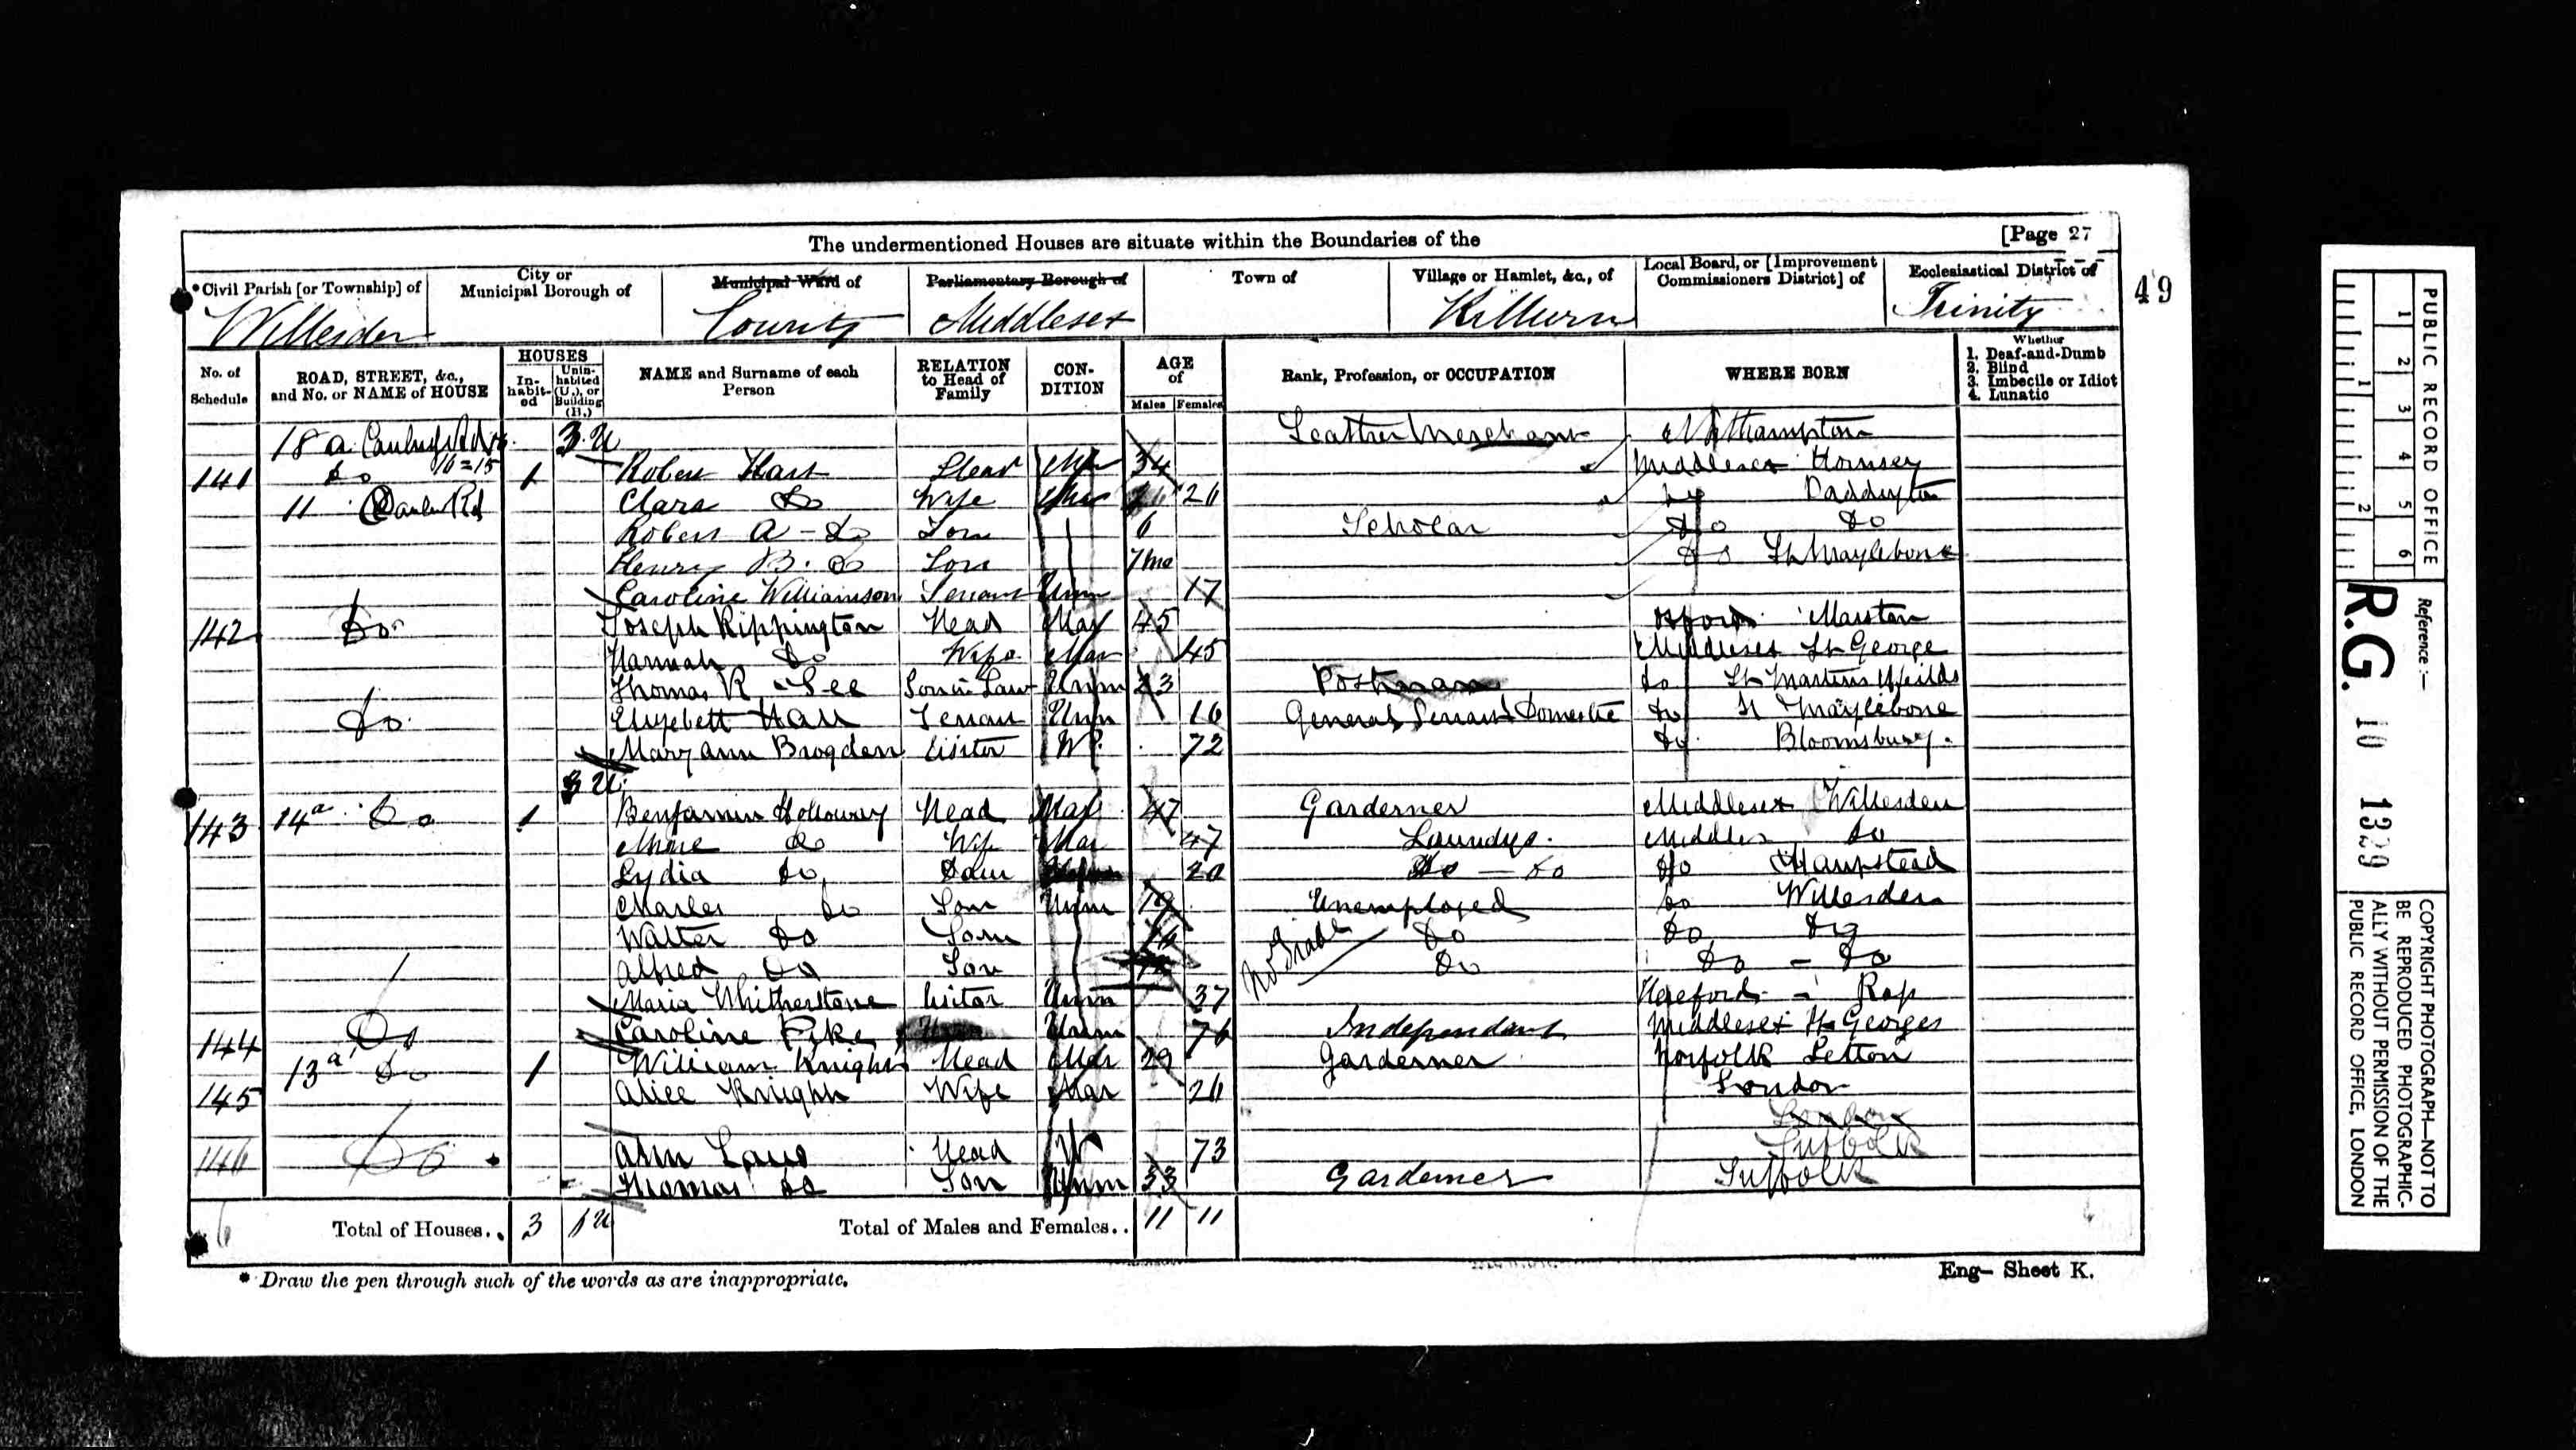 The undermentioned Houses are situate within the Boundaries of the [Page 27
*Civil Parish [or Township] of City or Municipal Borough of Municipal Ward of Parliamentary Borough of Town of Village or Hamlet, &c., of Local Board, or [Improvement Commissioners District] of Ecclesiastical District of
Willesden County Middlesex Kilburn Trinity
49
No. of Schedule ROAD, STREET, &c., and No. or NAME of HOUSE HOUSES In-habit-ed Unin-habited (U.), or Building (B.) NAME and Surname of each Person RELATION to Head of Family CON-DITION AGE of Males Females Rank, Profession, or OCCUPATION WHERE BORN Whether 1. Deaf-and-Dumb 2. Blind 3. Imbecile or Idiot 4. Lunatic
18 a 3 U Leather Merchant Northampton
141 Do 1 Robert Hart Head Mar 34 Middlesex Hornsey
11 Rd Clara Do Wife Mar 26 Paddington
Robert A - Do Son 6 Scholar Do Do
Henry B. Do Son 7mo Do St Marylebone
Caroline Williamson Servant Unm 17
142 Do Joseph Rippington Head Mar 45 Oxford Marston
Hannah Do Wife Mar 45 Middlesex St George
Thomas R. Lee Son in Law Unm 23 Postman Do St Martins
Do Elizebett Hall Servant Unm 16 General Servant Domestic Do St Marylebone
Mary ann Brogden Visitor W 72 Do Bloomsbury.
3 U
143 14a Do 1 Benjamin Holloway Head Mar 47 Garderner Middlesex Willesden
Do Wife Mar 47 Laundys. Middlesex Do
Lydia Do Daur 20 Do - Do Do Hampstead
Charles Do Son Unm 19 Unemployed Do Willesden
Walter Do Son 16 No Trade Do Do Do
Alfred Do Son Do Do - Do
Maria Whitherstone Visitor Unm 37 Hereford - Ross
144 Do Caroline Pyke Unm 76 Independent Middlesex St Georges
13a Do 1 William Knight Head Mar 29 Garderner Norfolk Letton
145 Alice Knight Wife Mar 26 London
London
146 Do Ann Laws Head W 73 Suffolk
Thomas Do Son Unm 33 Gardener Suffolk
6 Total of Houses.. 3 U Total of Males and Females.. 11 11
* Draw the pen through such of the words as are inappropriate.
Eng— Sheet K.
PUBLIC RECORD OFFICE
1 2 3 4 5 6
1 2
Reference:—
R.G. 10 1329
COPYRIGHT PHOTOGRAPH—NOT TO BE REPRODUCED PHOTOGRAPHIC-ALLY WITHOUT PERMISSION OF THE PUBLIC RECORD OFFICE, LONDON